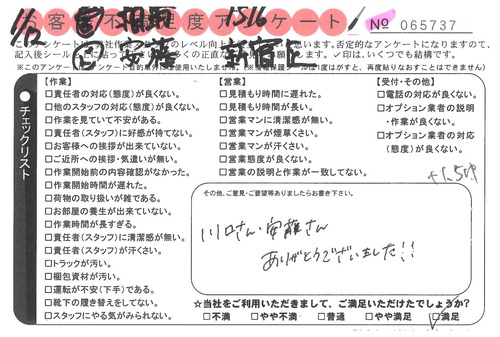 お客様不満足度アンケート
No 065737
1516
新宿
このアンケートは
社作業スタッフのレベル向上
否定的なアンケートになりますので、
記入後シールに
✓印は、いくつでも結構です。
チェックリスト
【作業】
□責任者の対応(態度)が良くない。
□他のスタッフの対応(態度)が良くない。
□作業を見ていて不安がある。
□責任者(スタッフ)に好感が持てない。
□お客様への挨拶が出来ていない。
□ご近所への挨拶・気遣いが無い。
□作業開始前の内容確認がなかった。
□作業開始時間が遅れた。
□荷物の取り扱いが雑である。
□お部屋の養生が出来ていない。
□作業時間が長すぎる。
□責任者(スタッフ)に清潔感が無い。
□責任者(スタッフ)が汗くさい。
□トラックが汚い。
□梱包資材が汚い。
□運転が不安(下手)である。
□靴下の履き替えをしてない。
□スタッフにやる気がみられない。
【営業】
□見積もり時間に遅れた。
□見積もり時間が長い。
□営業マンに清潔感が無い。
□営業マンが煙草くさい。
□営業マンが汗くさい。
□営業態度が良くない。
□営業の説明と作業が一致してない。
【受付・その他】
□電話の対応が良くない。
□オプション業者の説明
・作業が良くない。
□オプション業者の対応
(態度)が良くない。
その他、ご意見・ご要望等ありましたらお書き下さい。
川口さん・安藤さん
ありがとうございました!!
☆当社をご利用いただきまして、ご満足いただけたでしょうか?
□不満 □やや不満 □普通 □やや満足 ☑満足